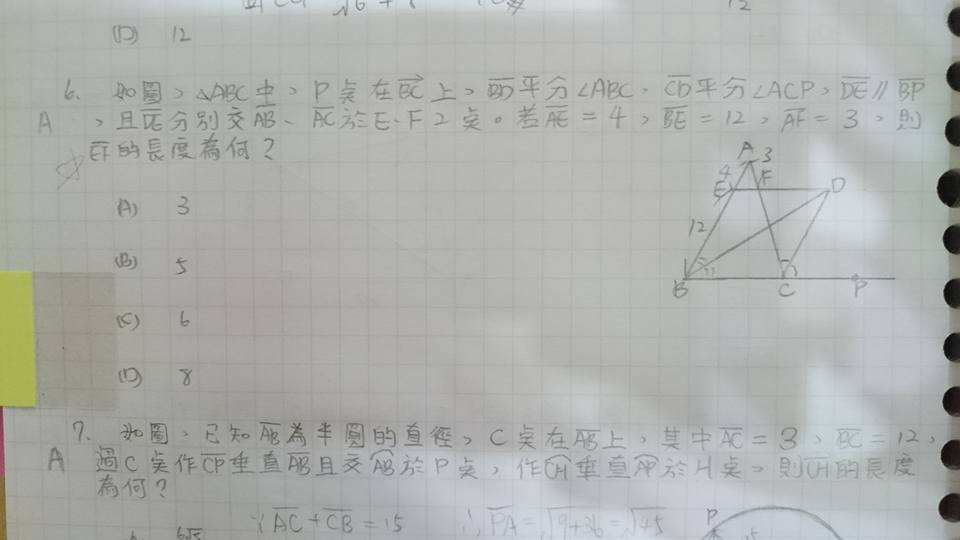 (D) 12
6. 如圖，△ABC中，P點在BC上，BD平分∠ABC，CD平分∠ACP，DE∥BP
A ，且DE分別交AB、AC於E、F2點。若AE=4，BE=12，AF=3，則
EF的長度為何？
A 3
4 E F D
(A) 3
12
(B) 5
B C P
(C) 6
(D) 8
7. 如圖，已知AB為半圓的直徑，C點在AB上，其中AC=3，BC=12，
A 過C點作CP垂直AB且交AB於P點，作CH垂直AP於H點，則CH的長度
為何？
∵AC+CB=15 ∴PA=√9+36=√45
P